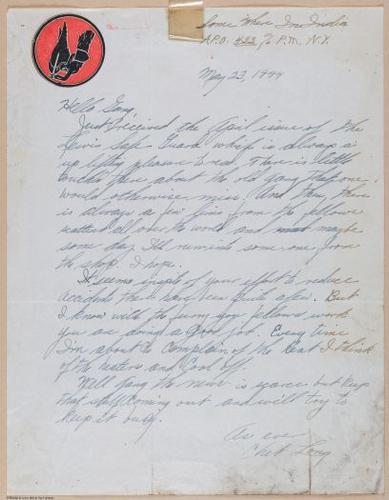 Some Where In India
A.P.O. 433 c/o P.M. N.Y.
May 23, 1944
Hello Gang
Just received the April issue of the
Safe Guard which is always a
up lifting pleasure to read. There is a little
touch there about the old gang that one
would otherwise miss. And then there
is always a few lines from the fellows
scattered all over the world and maybe
some day I'll run into some one from
the shop. I hope.
It seems inspite of your effort to reduce
accidents there have been quite a few. But
I know with the funny you fellows work
you are doing a good job. Every time
I'm about to complain of the heat I think
of the and cool off.
Well gang the news is scarce but keep
that stuff coming out and will try to
keep it busy.
As ever
Chet Long